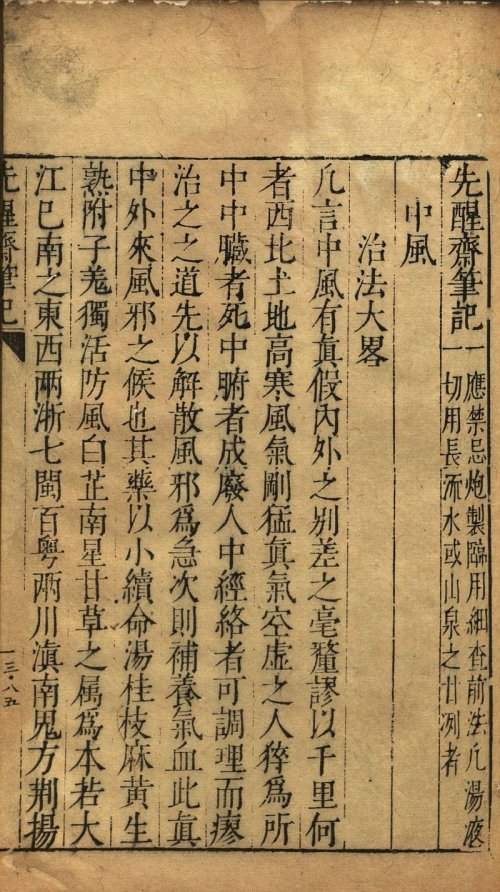 先醒齋筆記 一應禁忌炮製臨用細查前法凢湯液
一切用長流水或山泉之甘冽者
中風
治法大畧
凢言中風有眞假內外之别差之毫釐謬以千里何
者西北土地高寒風氣剛猛眞氣空虛之人猝爲所
中中臟者死中腑者成廢人中經絡者可調理而瘳
治之之道先以解散風邪爲急次則補養氣血此眞
中外來風邪之候也其藥以小續命湯桂枝麻黃生
熟附子羗獨活防風白芷南星甘草之属爲本若大
江已南之東西兩浙七閩百粤兩川滇南鬼方荆揚
先醒齋筆記
一三·八五